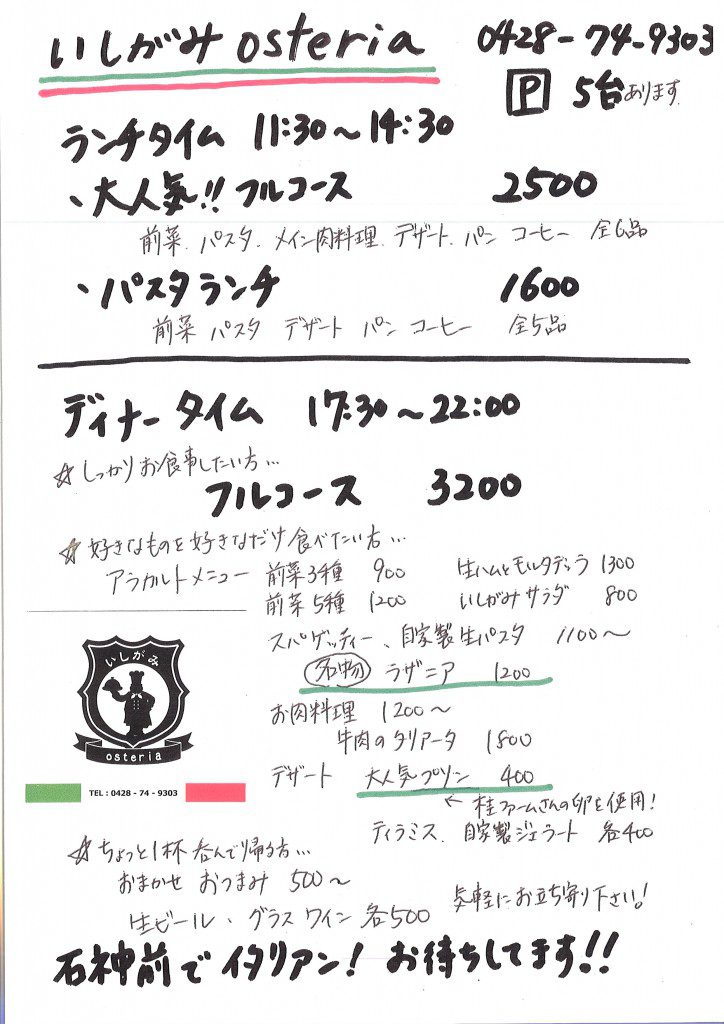 いしがみ osteria 0428-74-9303
P 5台あります
ランチタイム 11:30～14:30
・大人気!! フルコース 2500
前菜、パスタ、メイン肉料理、デザート、パン コーヒー 全6品
・パスタランチ 1600
前菜 パスタ デザート パン コーヒー 全5品
ディナータイム 17:30～22:00
☆しっかりお食事したい方…
フルコース 3200
☆好きなものを好きなだけ食べたい方…
アラカルトメニュー 前菜3種 900 生ハムとモルタデッラ 1300
前菜5種 1200 いしがみサラダ 800
スパゲッティー、自家製生パスタ 1100～
名物 ラザニア 1200
お肉料理 1200～
牛肉のタリアータ 1800
デザート 大人気プリン 400
← 桂ファームさんの卵を使用!
ティラミス、自家製ジェラート 各400
いしがみ
osteria
TEL : 0428 - 74 - 9303
☆ちょっと1杯呑んで帰る方…
おまかせ おつまみ 500～
生ビール、グラスワイン 各500
気軽にお立ち寄り下さい!
石神前でイタリアン! お待ちしてます!!